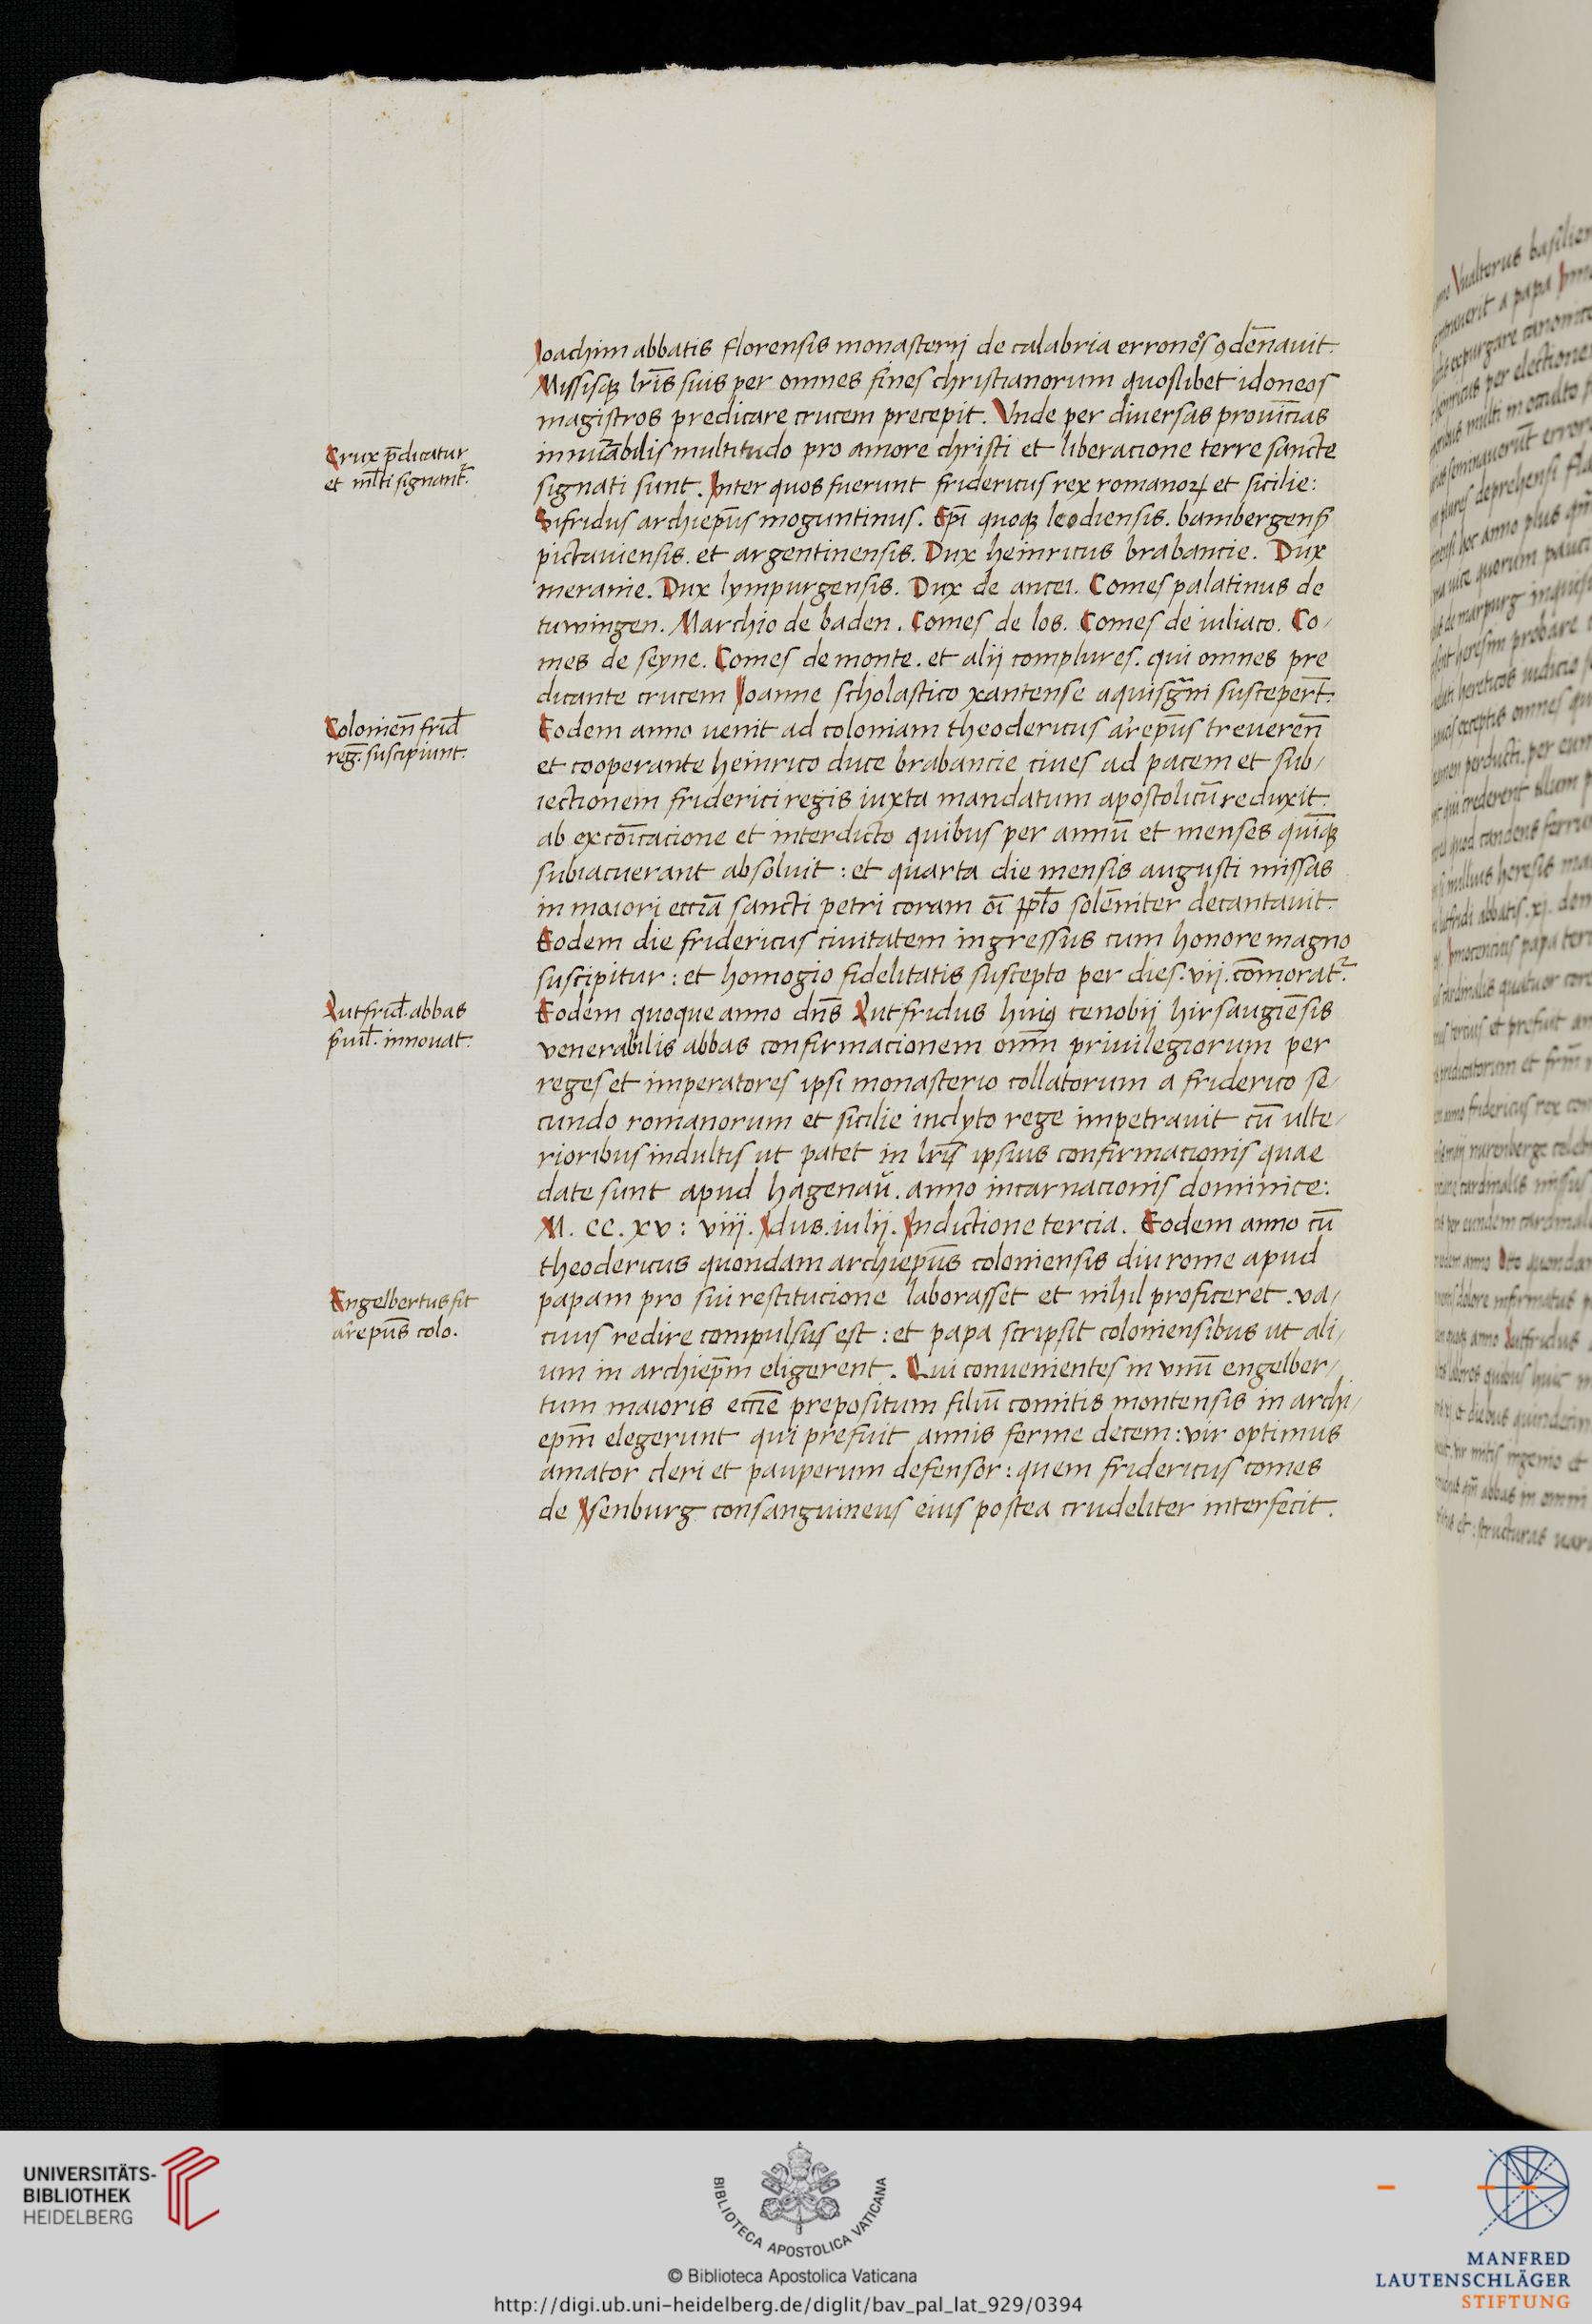 Joachim abbatis florensis monasterij de calabria erroneos ꝯde̅nauit.
Missisqꝫ lr̅is suis per omnes fines christianorum quoslibet idoneos
magistros predicare crucem precepit. Vnde per diuersas proui̅cias
innu̅abilis multitudo pro amore christi et liberacione terre sancte
Crux p̅dicatur
et ml̅ti signant᷑.
signati sunt. Inter quos fuerunt fridericus rex romanoꝝ et sicilie:
Sifridus archiep̅us moguntinus. Ep̅i quoqꝫ leodiensis. bambergens̅
pictauiensis. et argentinensis. Dux heinricus brabancie. Dux
meranie. Dux lympurgensis. Dux de ancei. Comes palatinus de
tuwingen. Marchio de baden. Comes de los. Comes de iuliaco. Co/
mes de seyne. Comes de monte. et alij complures. qui omnes pre
dicante crucem Joanne scholastico xantense aquisgr̅ni susceper̅t.
Colonien̅ frid̅
reg̅. suscipiunt.
Eodem anno uenit ad coloniam theodericus ar̅epu̅s treueren̅
et cooperante heinrico duce brabancie ciues ad pacem et sub/
iectionem friderici regis iuxta mandatum apostolicu̅ reduxit.
ab exco̅icacione et interdicto quibus per annu̅ et menses qui̅qꝫ
subiacuerant absoluit: et quarta die mensis augusti missas
in maiori eccia̅ sancti petri coram oi̅ pp̅lo sole̅niter decantauit.
Eodem die fridericus ciuitatem ingressus cum honore magno
suscipitur: et homogio fidelitatis suscepto per dies. vij. co̅morat᷑.
Lutfrid̅. abbas
p̅uil̅. innouat.
Eodem quoque anno dn̅s Lutfridus huiꝯ cenobij hirsaugie̅sis
venerabilis abbas confirmacionem om̅m priuilegiorum per
reges et imperatores ipsi monasterio collatorum a friderico se/
cundo romanorum et sicilie inclyto rege impetrauit cu̅ ulte/
rioribus indultis ut patet in lr̅is ipsius confirmacionis quae
date sunt apud hagenau̅. anno incarnacionis dominice:
M. CC. xv: viij. Idus. iulij. Indictione tercia. Eodem anno cu̅
theodericus quondam archiepu̅s coloniensis diu rome apud
Engelbertus fit
ar̅epu̅s colo.
papam pro sui restitucione laborasset et nihil proficeret. va/
cuus redire compulsus est: et papa scripsit coloniensibus ut ali/
um in archiep̅m eligerent. Qui conuenientes in vnu̅ engelber/
tum maioris eccie̅ prepositum filiu̅ comitis montensis in archi/
epm̅ elegerunt qui prefuit annis ferme decem: vir optimus
amator cleri et pauperum defensor: quem fridericus comes
de Ysenburg consanguineus eius postea crudeliter interfecit.
UNIVERSITÄTS-
BIBLIOTHEK
HEIDELBERG
BIBLIOTECA APOSTOLICA VATICANA
© Biblioteca Apostolica Vaticana
http://digi.ub.uni-heidelberg.de/diglit/bav_pal_lat_929/0394
MANFRED
LAUTENSCHLÄGER
STIFTUNG